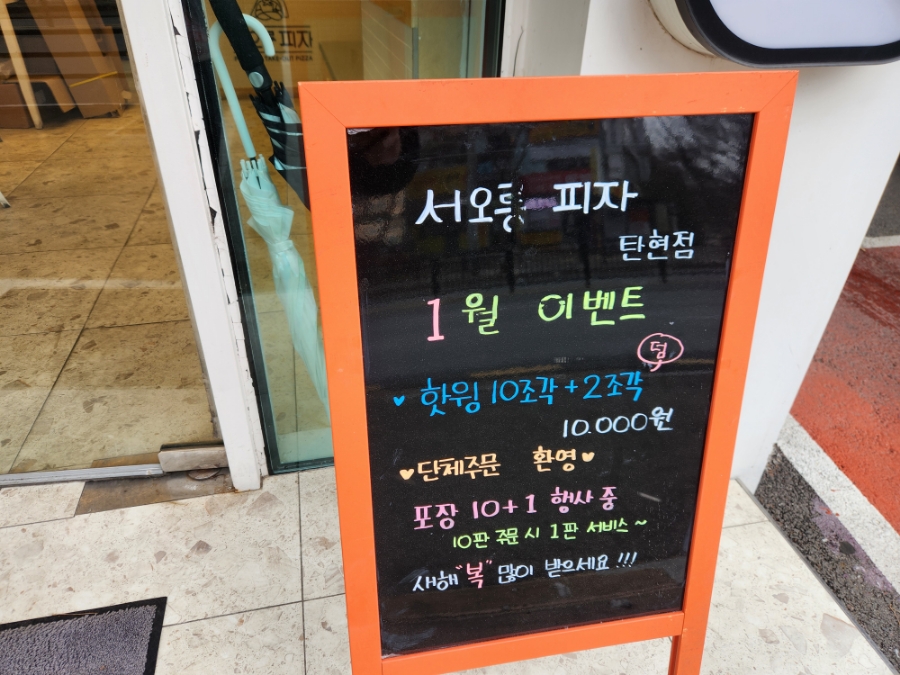 서오릉 피자
탄현점
1월 이벤트
덤
핫윙 10조각+2조각
10.000원
단체주문 환영
포장 10+1 행사 중
10판 주문 시 1판 서비스~
새해 "복" 많이 받으세요!!!
피자